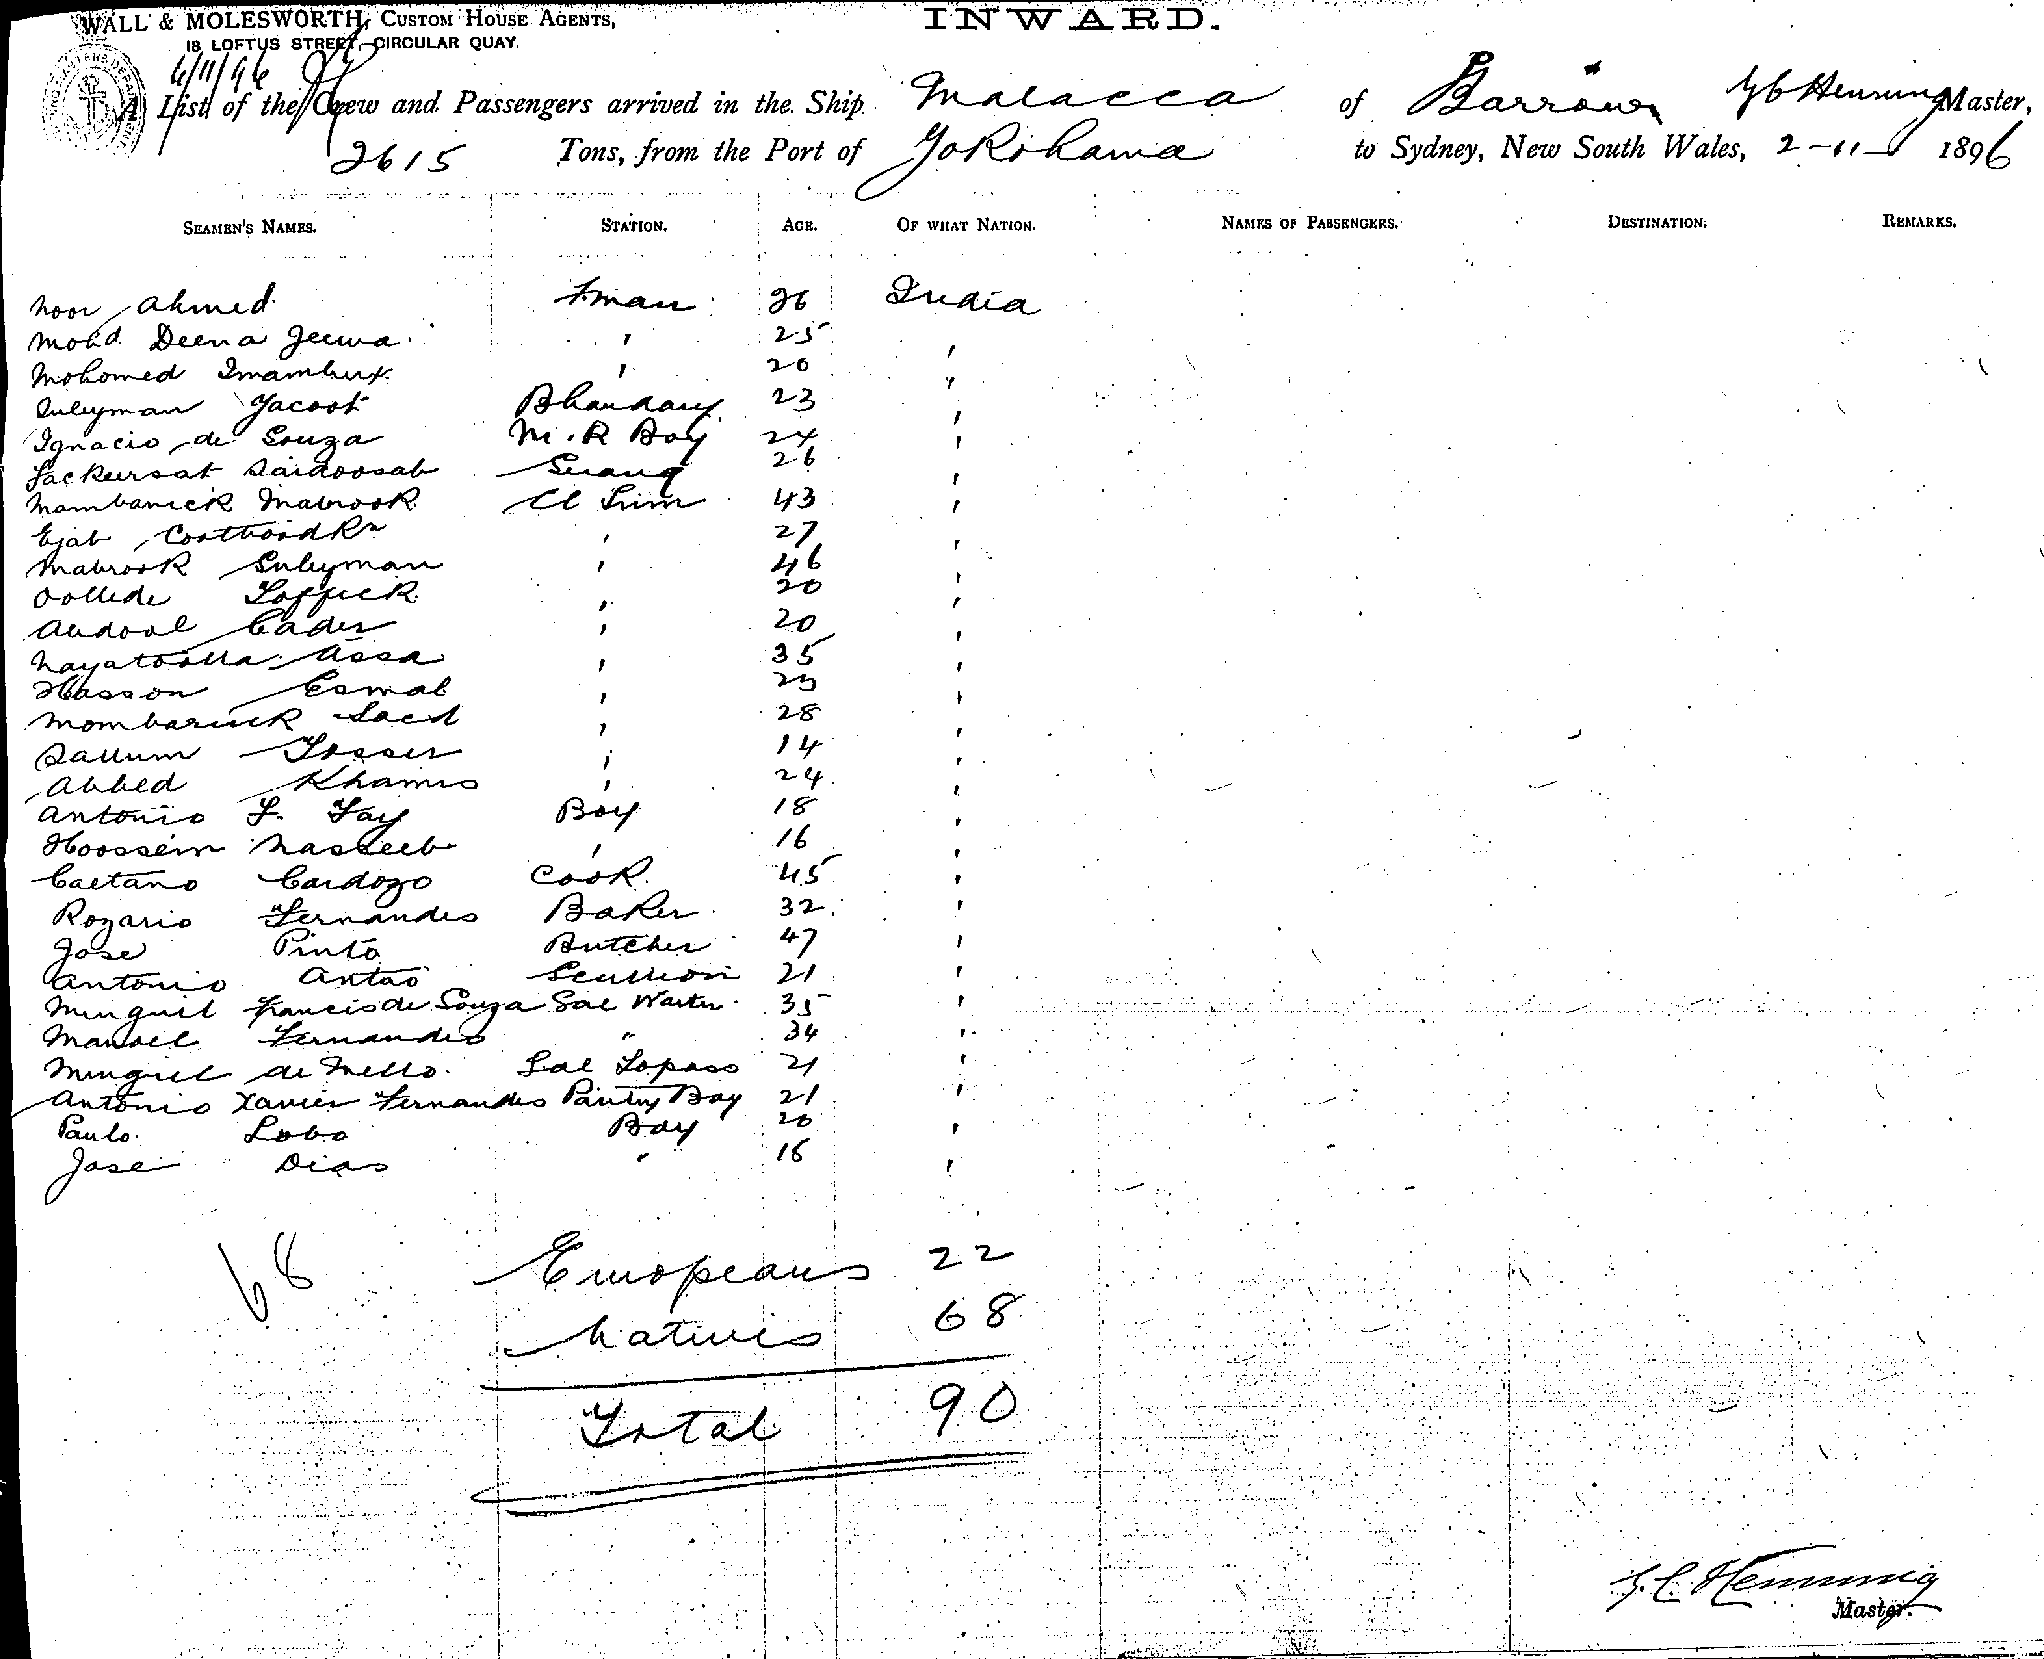 WALL & MOLESWORTH, CUSTOM HOUSE AGENTS,
18 LOFTUS STREET, CIRCULAR QUAY.
INWARD.
6/11/96
A List of the Crew and Passengers arrived in the Ship Malacca of Barrow G C Henning Master,
2615 Tons, from the Port of Yokohama to Sydney, New South Wales, 2-11- 1896
SEAMEN'S NAMES. STATION. AGE. OF WHAT NATION. NAMES OF PASSENGERS. DESTINATION. REMARKS.
Noor Ahmed Fman 26 India
Mohd Deena Jeewa ' 25 '
Mohomed Imambux ' 20 '
Suleyman Yacoot Bhandary 23 '
Ignacio de Souza M.R Boy 24 '
Sackursat Saidoosab Serang 26 '
Mambarick Mabrook Cl Trim 43 '
Ejab ' 27 '
Mabrook Suleyman ' 46 '
Oollede Toffick ' 20 '
Abdool Cader ' 20 '
Nayatoolla Assa ' 35 '
Hasson Esmal ' '
Mombarick Saed ' 28 '
Sallum Tosser ' 14 '
Abbed Khamis ' 24 '
Antonio F. Fay Boy 18 '
Hoossein Nasseeb ' 16 '
Caetano Cardozo Cook 45 '
Rozario Fernandes Baker 32 '
Jose Pinto Butcher 47 '
Antonio Antao Scullion 21 '
Minguel Francis de Souza Sal Waiter 35 '
Manoel Fernandes " 34 '
Minguel de Mello Sal Topass 21 '
Antonio Xavier Fernandes Pantry Boy 21 '
Paulo Lobo Boy 20 '
Jose Dias " 16 '
68
Europeans 22
Natives 68
Total 90
G.C. Henning
Master.